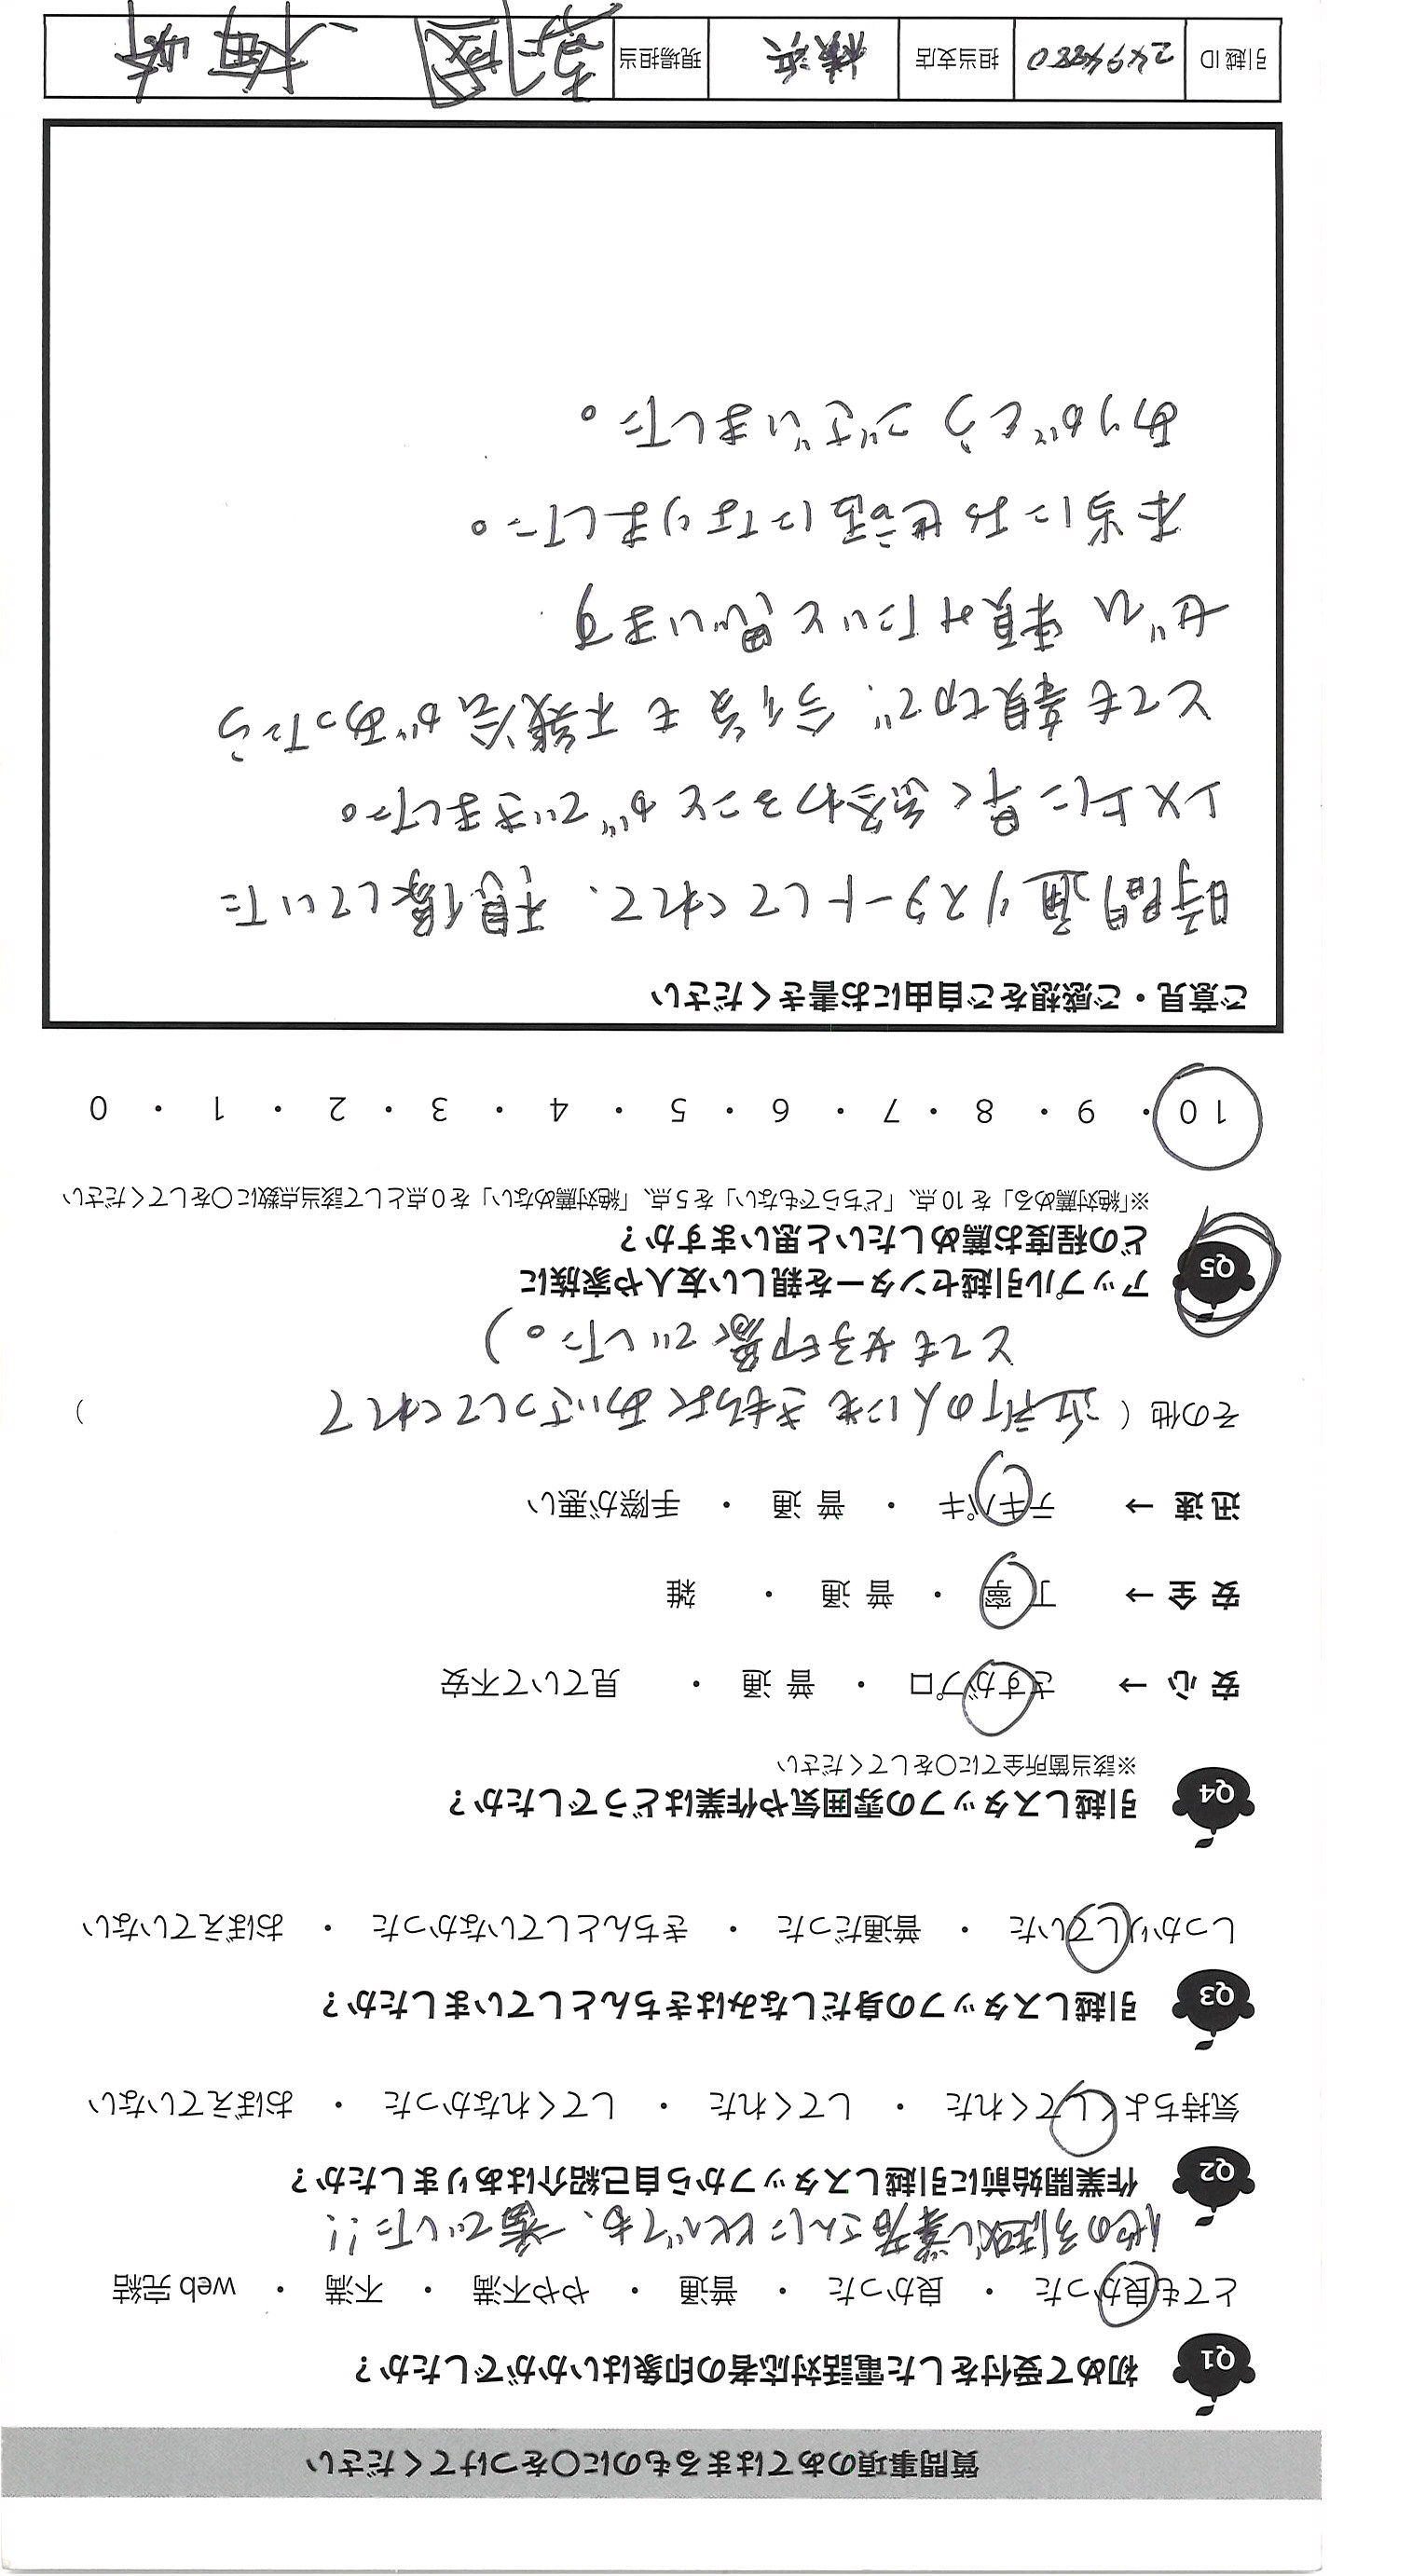 質問事項のあてはまるものに〇をつけてください
Q1 初めて受付をした電話対応者の印象はいかがでしたか？
とても良かった ・ 良かった ・ 普通 ・ やや不満 ・ 不満 ・ web 完結
他の引越し業者さんに比べても、一番でした!!
Q2 作業開始前に引越しスタッフから自己紹介はありましたか？
気持ちよくしてくれた ・ してくれた ・ してくれなかった ・ おぼえていない
Q3 引越しスタッフの身だしなみはきちんとしていましたか？
しっかりしていた ・ 普通だった ・ きちんとしていなかった ・ おぼえていない
Q4 引越しスタッフの雰囲気や作業はどうでしたか？
※該当箇所全てに〇をしてください
安 心 → さすがプロ ・ 普 通 ・ 見ていて不安
安 全 → 丁 寧 ・ 普 通 ・ 雑
迅 速 → テキパキ ・ 普 通 ・ 手際が悪い
その他（ 近所の人にも きもちよく あいさつしてくれて ）
とても好印象でした。)
Q5 アップル引越センターを親しい友人や家族に
どの程度お薦めしたいと思いますか？
※「絶対薦める」を 10 点、「どちらでもない」を 5 点、「絶対薦めない」を 0 点として該当点数に〇をしてください
10 ・ 9 ・ 8 ・ 7 ・ 6 ・ 5 ・ 4 ・ 3 ・ 2 ・ 1 ・ 0
ご意見・ご感想をご自由にお書きください
時間通りスタートしてくれて、想像していた
以上に早く終わることができました。
とても親切で、今後も不機会があったら
ぜひ頼みたいと思います
本当にお世話になりました。
ありがとうございました。
引越 ID 担当支店 横浜 現場担当 梅崎